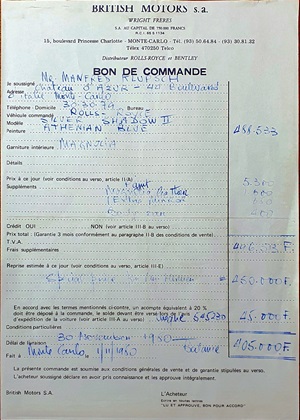 BRITISH MOTORS s.a.
WRIGHT FRERES
S.A. AU CAPITAL DE FRANCS
15, boulevard Princesse Charlotte - MONTE-CARLO - Tél. (93) 50.64.84 - (93) 30.81.22
Télex 470250 Telco
Distributeur ROLLS-ROYCE et BENTLEY
BON DE COMMANDE
Je soussigné Mr MANFRED
Adresse Château d'AZUR - 44 Boulevard
d'Italie Monte Carlo
Téléphone : Domicile 30.30.74 Bureau
Véhicule commandé ROLLS ROYCE
Modèle SILVER SHADOW II
Peinture ATHENIAN BLUE
Garniture intérieure MAGNOLIA
Détails
Prix à ce jour (voir conditions au verso, article III-A)
Suppléments
Crédit OUI NON (voir article III-B au verso)
Prix total : (Garantie 3 mois conformément au paragraphe II-B des conditions de vente)
T.V.A.
Frais supplémentaires
Reprise estimée à ce jour (voir conditions au verso, article III-E)
En accord avec les termes mentionnés ci-contre, un acompte équivalent à 20 %
doit être déposé à la commande, le solde devant être versé
d'expédition de la voiture (voir article III-A au verso) 45.000 F.
Conditions particulières
Délai de livraison 30 November 1980
Fait à Monte Carlo 1/11/1980 Balance 405.000 F.
La présente commande est soumise aux conditions générales de vente et de garantie stipulées au verso.
L'acheteur soussigné déclare en avoir pris connaissance et les approuve intégralement.
British Motors S.A.
L'Acheteur
Ecrire en toutes lettres
"LU ET APPROUVE, BON POUR ACCORD"